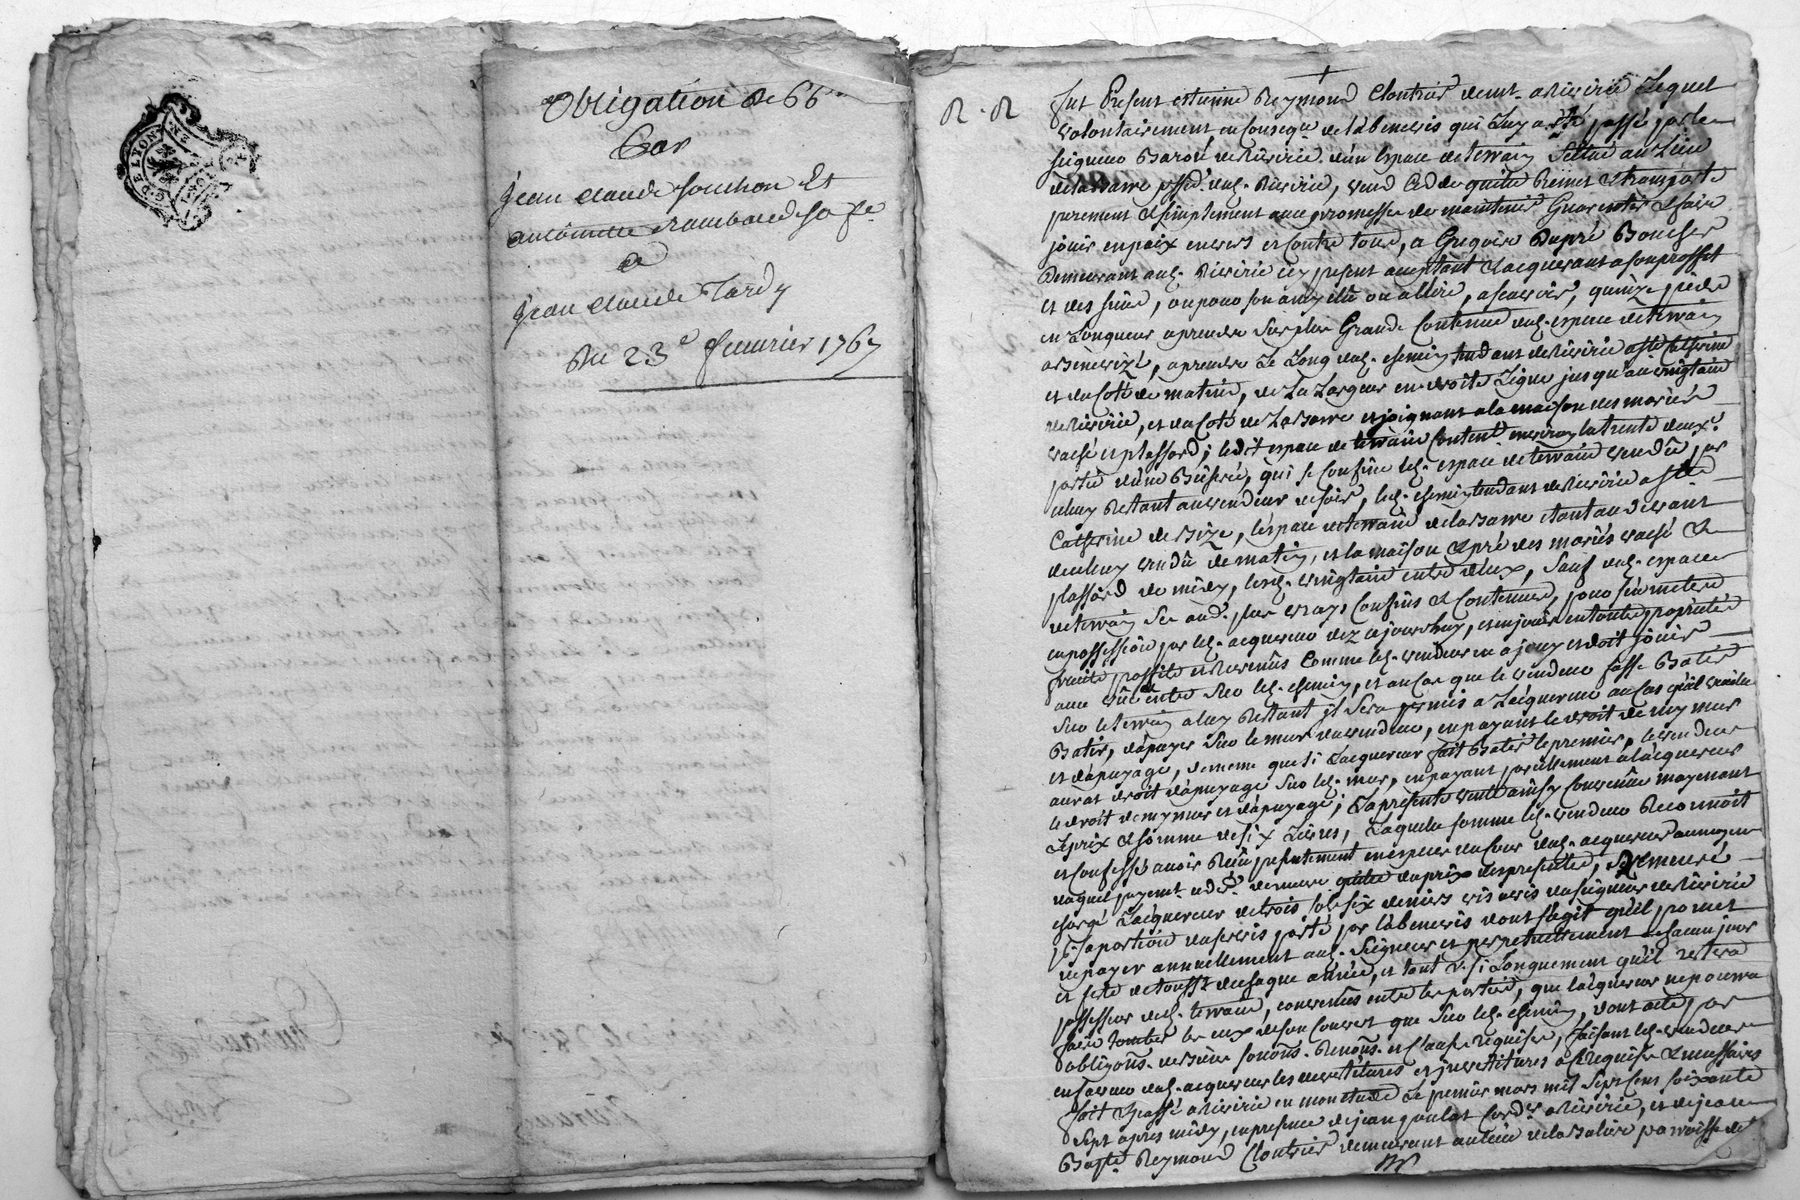 G. DE LYON
GEN
obligation de 66
Par
Jean Claude Souchon Et
antoinette Rambaud sa fe
a
Jean Claude Tardy
Du 23e feuvrier 1767
R. R.
fut Present estienne Reymond Cloutrier demt. a Riverie Lequel
volontairement en conseqe. de labenevis qui Luy a été passé par le
seigneur Baron de Riverie d'un Espace de terrain Scitué au Lieu
delabarre psse. dud. Riverie, vend Ced de quitte Remet & transporte
purement & simplement avec promesse de maintenir Guarentir & faire
jouir en paix envers et contre tous, a Gregoire Dupré Boucher
Demeurant aud. Riverie icy present acceptant & acquerant a son proffit
et des siens, ou pour son amy elu ou a elire, ascavoir, quinze pieds
en Longueur aprendre sur plus Grande Contenue dud. espace de terrain
abenevizé, aprendre Le Long dud. chemin tendant de Riverie a ste Catherine
et du coté de matin, de La Largeur en droite Ligne jusqu'au vingtain
de Riverie, et du coté de Labarre et joignant a la maison des mariés
vacsé et plassard; ledit espace de terrain Content. environ la trente deuxe.
partie d'une Bicherée, qui se confine led. espace de terrain vendu par
celuy Restant au vendeur de soir, led. chemin tendant de Riverie a ste
Catherine de bize, l'espace de terrain delabarre etant au devant
de celuy vendu de matin, et la maison & pré des mariés vacsé &
plassard de midy, led. vingtain entre d'eux, Sauf dud. espace
de terrain Ses aud. plus vrays Confins & Contenues, pour s'en mettre
en possession par led. acquereur dez cejourdhuy, et en jouir en toute proprieté
fruits proffits et Revenus Comme led. vendeur en a jouy et doit jouir
avec vue entrée sur led. chemin, et au cas que le vendeur fasse Batir
sur le terrain a luy Restant il sera permis a Lacquereur au cas qu'il veuille
Batir, d'apuyer sur le mur du vendeur, en payant le droit de my mur
et d'apuyage, de meme que si Lacquereur fait Batir le premier, le vendeur
aurat droit d'apuyage sur led. mur, en payant pareillement a lacquereur
le droit de my mur et d'apuyage; La presente vente ainsy convenue moyenant
Leprix & somme de six Livres, Laquelle somme led. vendeur Reconnoit
et confesse avoir Reçu presentement en especes du cours dud. acquereur au moyen
duquel payemt. led. demeure quitte du prix des presentes, & demeure
chargé Lacquereur de trois sols six deniers vis avis du seigneur de Riverie
pr. sa portion du servis porté par l'abenevis dont s'agit qu'il promet
de payer annuellement aud. Seigneur et perpetuellement a chacun jour
et fete de toussts. de chaque année, et tant & si Longuement qu'il restera
possesseur dud. terrain, convenus entre les parties, que l'acquereur ne pourra
faire tomber les eaux de son couvert que sur led. chemin, dont acte par
obligons. de biens soumons. Renons. et clauses requises, faisant led. vendeur
en faveur dud. acquereur les devestitures et investitures a ce Requises & necessaires
fait & passé a Riverie en mon etude Le premier mars mil Sept cent soixante
Sept apres midy, en presence de jean goulat Cordr. a Riverie, et de jean
Bapte. Reymond Cloutrier demeurant au Lieu delabaliere parroisse de